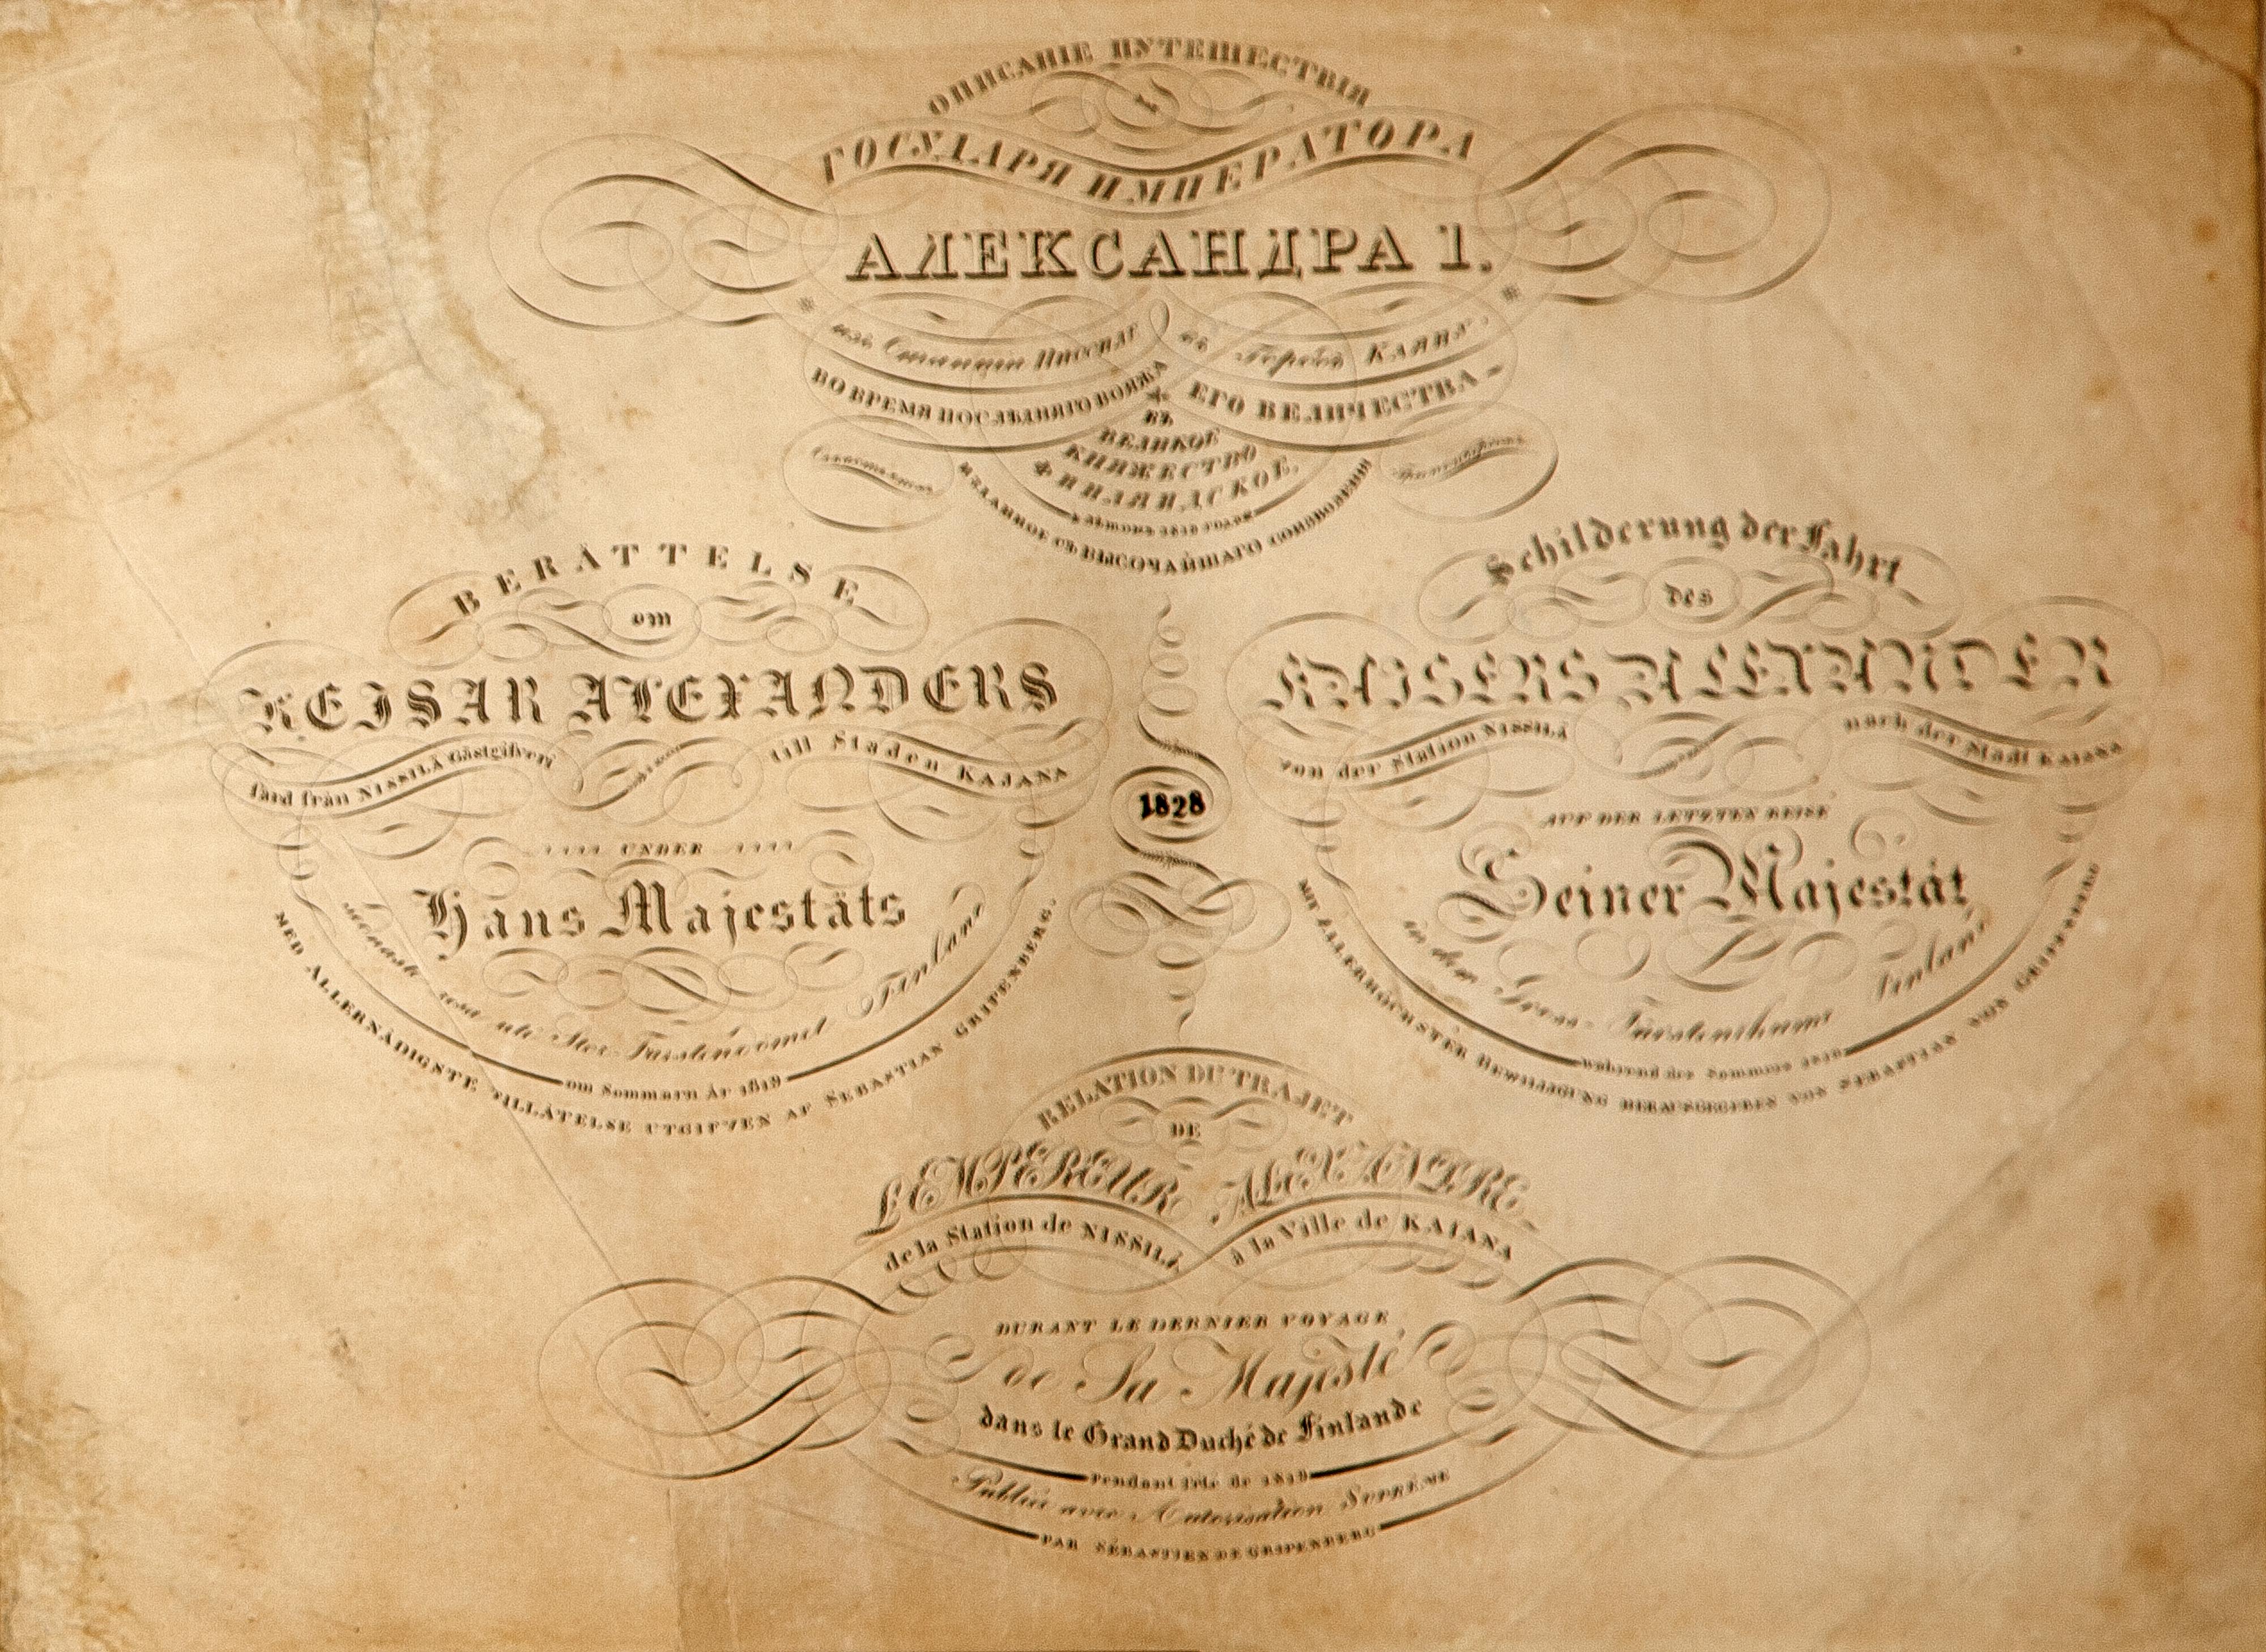 ОПИСАНІЕ ПУТЕШЕСТВІЯ
ГОСУДАРЯ ИМПЕРАТОРА
АЛЕКСАНДРА I.
изъ Станціи Ниссиле въ Городъ Каяна
ВО ВРЕМЯ ПОСЛѢДНЯГО ВОЯЖА ЕГО ВЕЛИЧЕСТВА
ВЪ
ВЕЛИКОЕ
КНЯЖЕСТВО
ФИНЛЯНДСКОЕ,
ИЗДАННОЕ СЪ ВЫСОЧАЙШАГО СОИЗВОЛЕНІЯ
BERÄTTELSE
om
KEISAR ALEXANDERS
färd från NISSILÄ Gästgifveri till Staden KAJANA
UNDER
Hans Majestäts
resa uti Stor-Furstendömet Finland
om Sommarn År 1819
MED ALLERNÅDIGSTE TILLÅTELSE UTGIFVEN AF SEBASTIAN GRIPENBERG.
Schilderung der Fahrt
des
KAISERS ALEXANDER
von der Station NISSILÄ nach der Stadt KAJANA
AUF DER LETZTEN REISE
Seiner Majestät
in dem Gross-Fürstenthume Finland
während des Sommers 1819
MIT ALLERHÖCHSTER BEWILLIGUNG HERAUSGEGEBEN VON SEBASTIAN VON GRIPENBERG
1828
RELATION DU TRAJET
DE
L'EMPEREUR ALEXANDRE
de la Station de NISSILÄ à la Ville de KAIANA
DURANT LE DERNIER VOYAGE
de Sa Majesté
dans le Grand Duché de Finlande
Pendant l'été de 1819
Publiée avec Autorisation SUPRÊME
PAR SÉBASTIEN DE GRIPENBERG